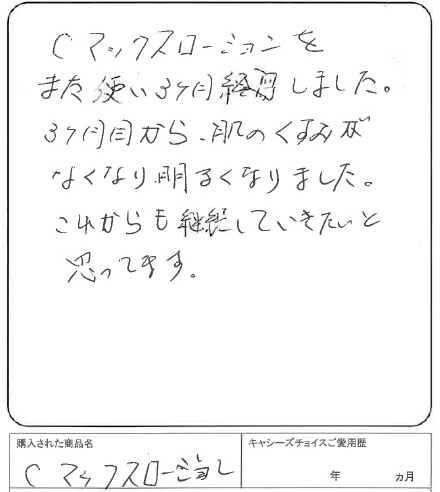 Cマックスローションを
まだ使い3ヶ月経過しました。
3ヶ月目から、肌のくすみが
なくなり明るくなりました。
これからも継続していきたいと
思ってます。
購入された商品名
キャシーズチョイスご愛用歴
Cマックスローション
年 ヵ月